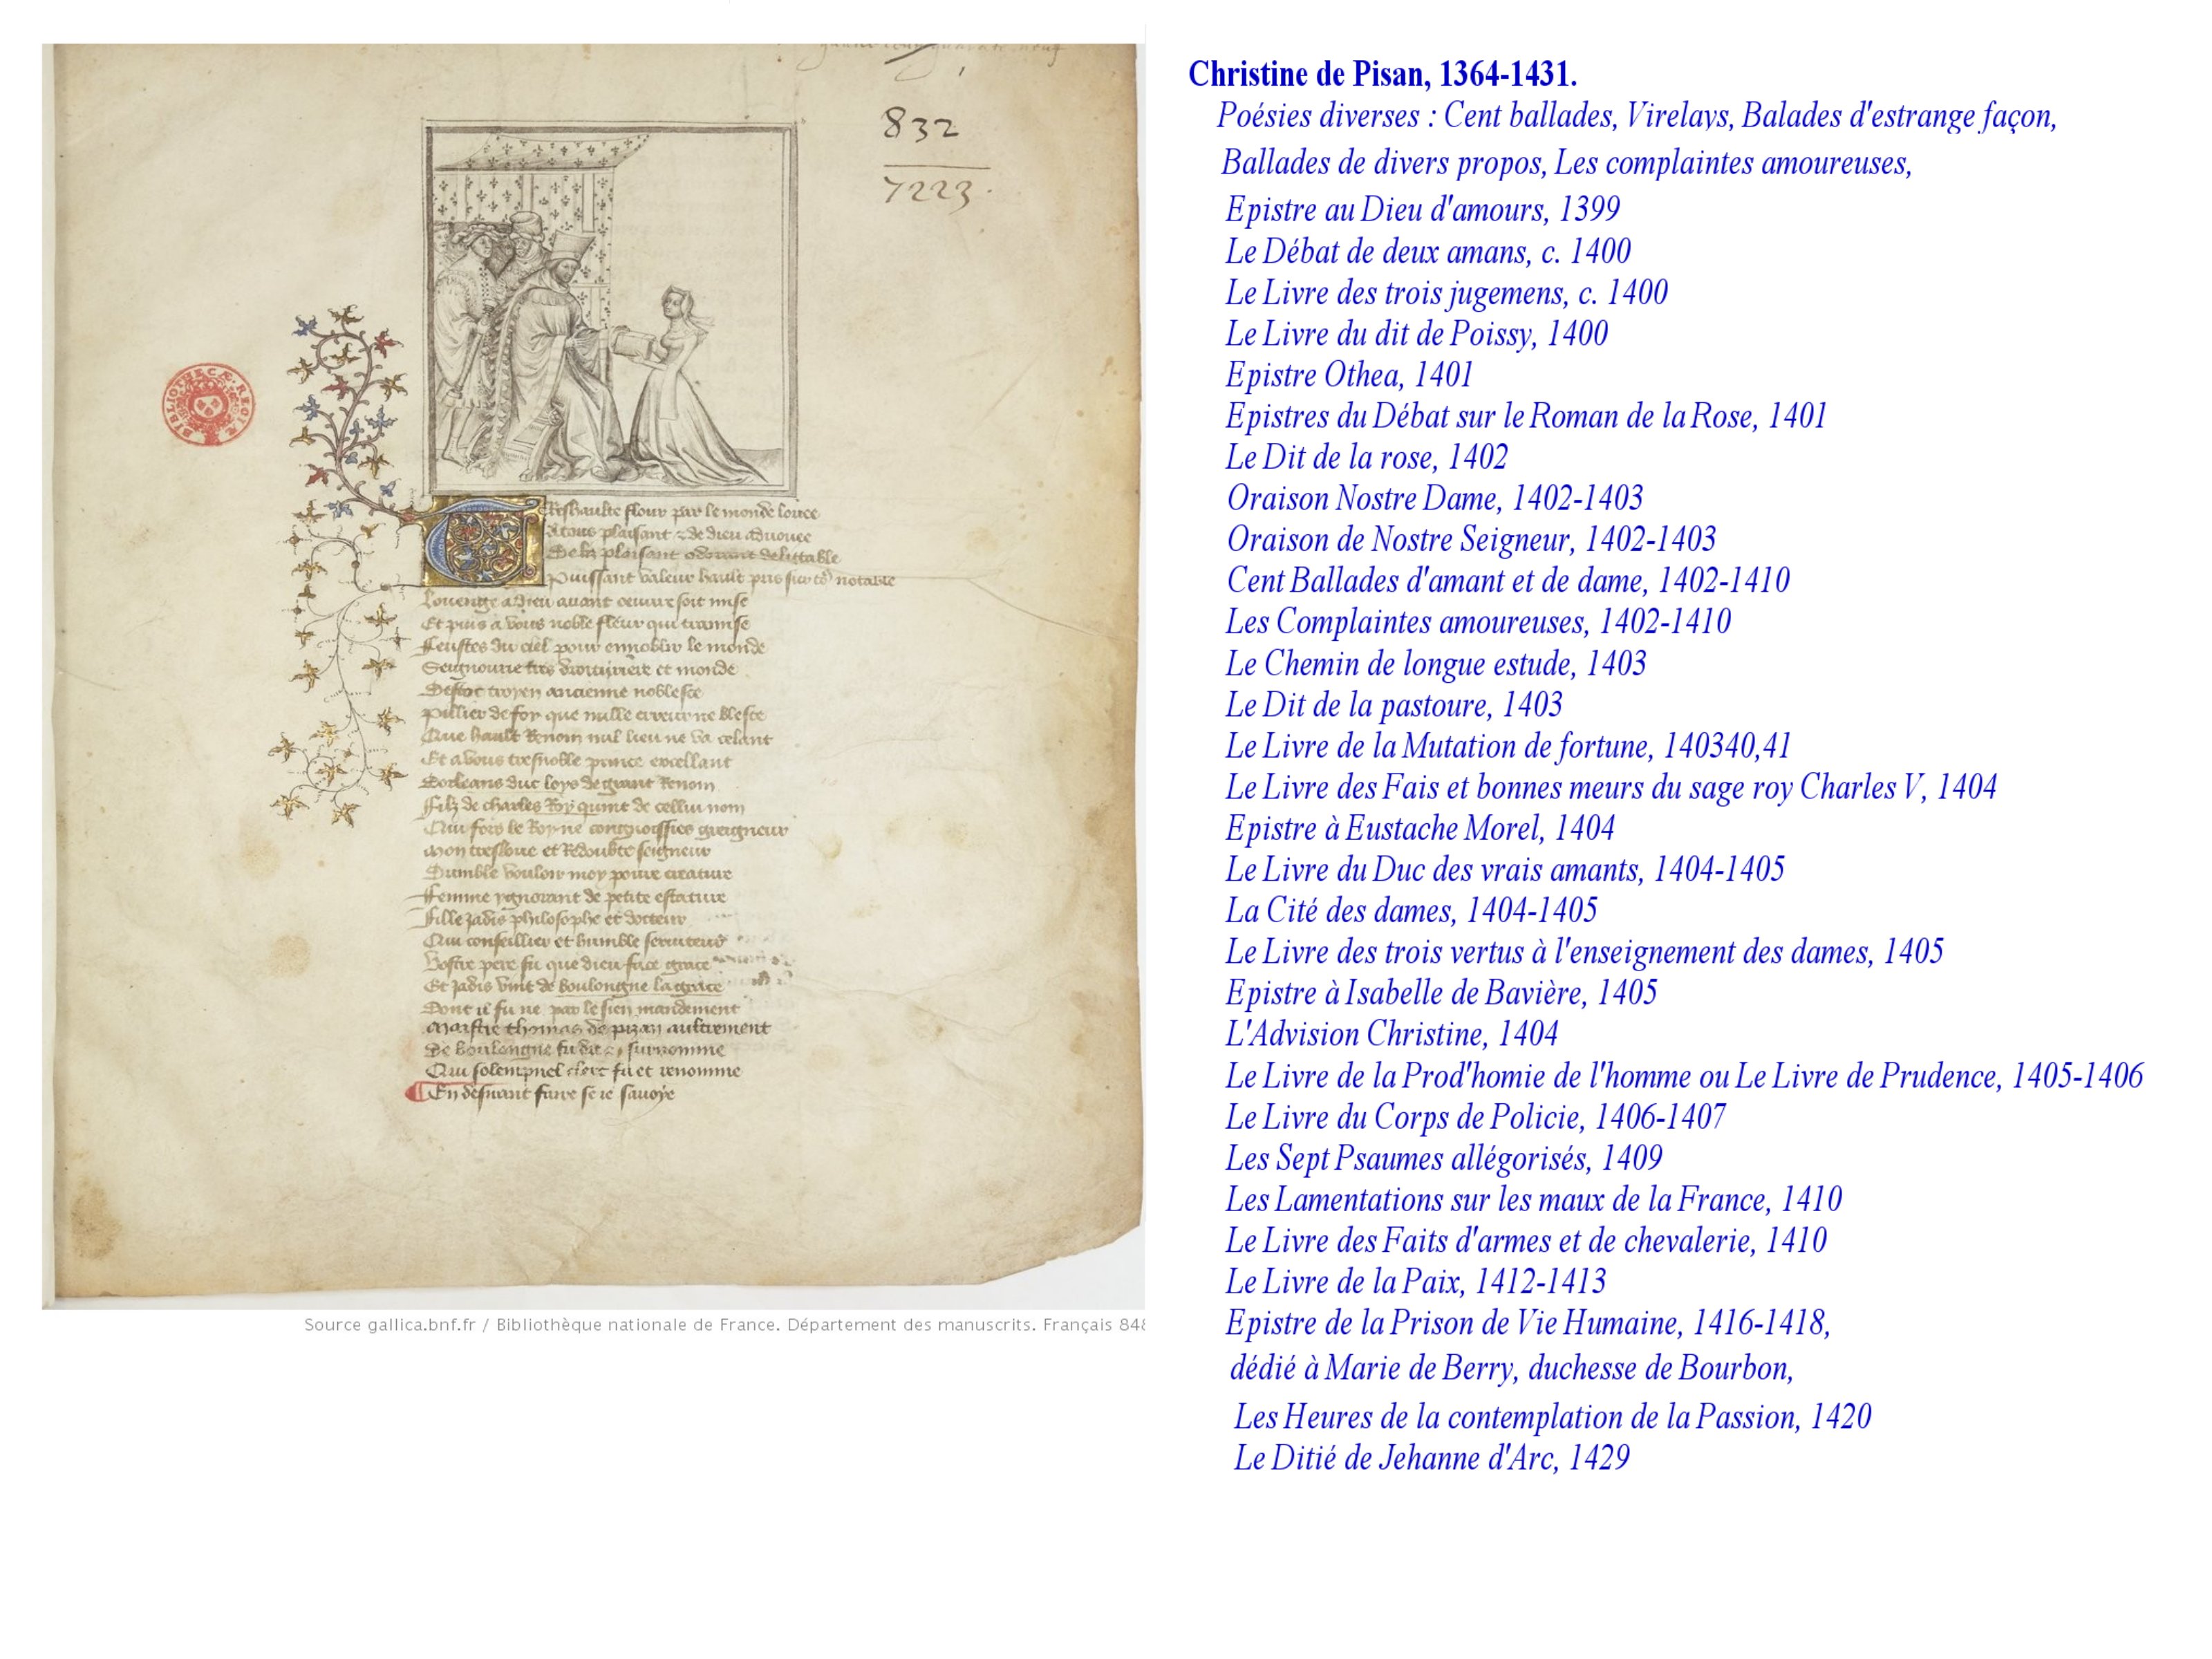 832
7223.
BIBLIOTHECÆ REGIÆ
Treshaulte flour par le monde louee
A tous plaisant et de dieu aduouee
De lis plaisant odorant delittable
Puissant valeur hault pris sur tous notable
Louenge a dieu auant oeuure soit mise
Et puis a vous noble fleur qui transmise
Feustes du ciel pour ennoblir le monde
Seignourie tres droituriere et monde
Destoc troyen ancienne noblesce
Pillier de foy que nulle erreur ne blesce
Que hault Renom nul lieu ne va celant
Et a vous tresnoble prince excellant
Dorleans duc loys de grant Renom
Filz de charles Roy quint de cellui nom
Qui fors le Roy ne congnoissies greigneur
Mon tresloue et Redoubte seigneur
Dumble vouloir moy poure creature
Femme ygnorant de petite estature
Fille jadis philosophe et docteur
Qui conseillier et humble seruiteur
Vostre pere fu que dieu face grace
Et jadis vint de boulongne la grace
Dont il fu ne par le sien mandement
Maistre thomas de pizan aultrement
De boulongne fu dit et surnomme
Qui solempnel clerc fu et renomme
En desirant faire se ie sauoye
Source gallica.bnf.fr / Bibliothèque nationale de France. Département des manuscrits. Français 848
Christine de Pisan, 1364-1431.
Poésies diverses : Cent ballades, Virelays, Balades d'estrange façon,
Ballades de divers propos, Les complaintes amoureuses,
Epistre au Dieu d'amours, 1399
Le Débat de deux amans, c. 1400
Le Livre des trois jugemens, c. 1400
Le Livre du dit de Poissy, 1400
Epistre Othea, 1401
Epistres du Débat sur le Roman de la Rose, 1401
Le Dit de la rose, 1402
Oraison Nostre Dame, 1402-1403
Oraison de Nostre Seigneur, 1402-1403
Cent Ballades d'amant et de dame, 1402-1410
Les Complaintes amoureuses, 1402-1410
Le Chemin de longue estude, 1403
Le Dit de la pastoure, 1403
Le Livre de la Mutation de fortune, 140340,41
Le Livre des Fais et bonnes meurs du sage roy Charles V, 1404
Epistre à Eustache Morel, 1404
Le Livre du Duc des vrais amants, 1404-1405
La Cité des dames, 1404-1405
Le Livre des trois vertus à l'enseignement des dames, 1405
Epistre à Isabelle de Bavière, 1405
L'Advision Christine, 1404
Le Livre de la Prod'homie de l'homme ou Le Livre de Prudence, 1405-1406
Le Livre du Corps de Policie, 1406-1407
Les Sept Psaumes allégorisés, 1409
Les Lamentations sur les maux de la France, 1410
Le Livre des Faits d'armes et de chevalerie, 1410
Le Livre de la Paix, 1412-1413
Epistre de la Prison de Vie Humaine, 1416-1418,
dédié à Marie de Berry, duchesse de Bourbon,
Les Heures de la contemplation de la Passion, 1420
Le Ditié de Jehanne d'Arc, 1429